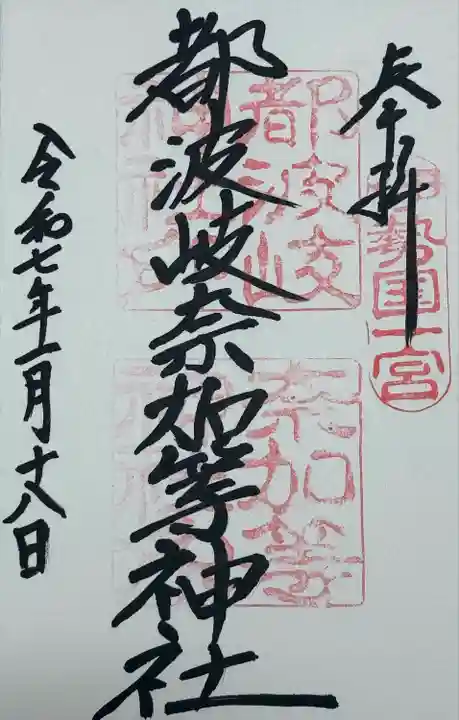 奉拝
伊勢国一宮
都波岐奈加等神社
都波岐
神社印
奈加等
令和七年一月十八日